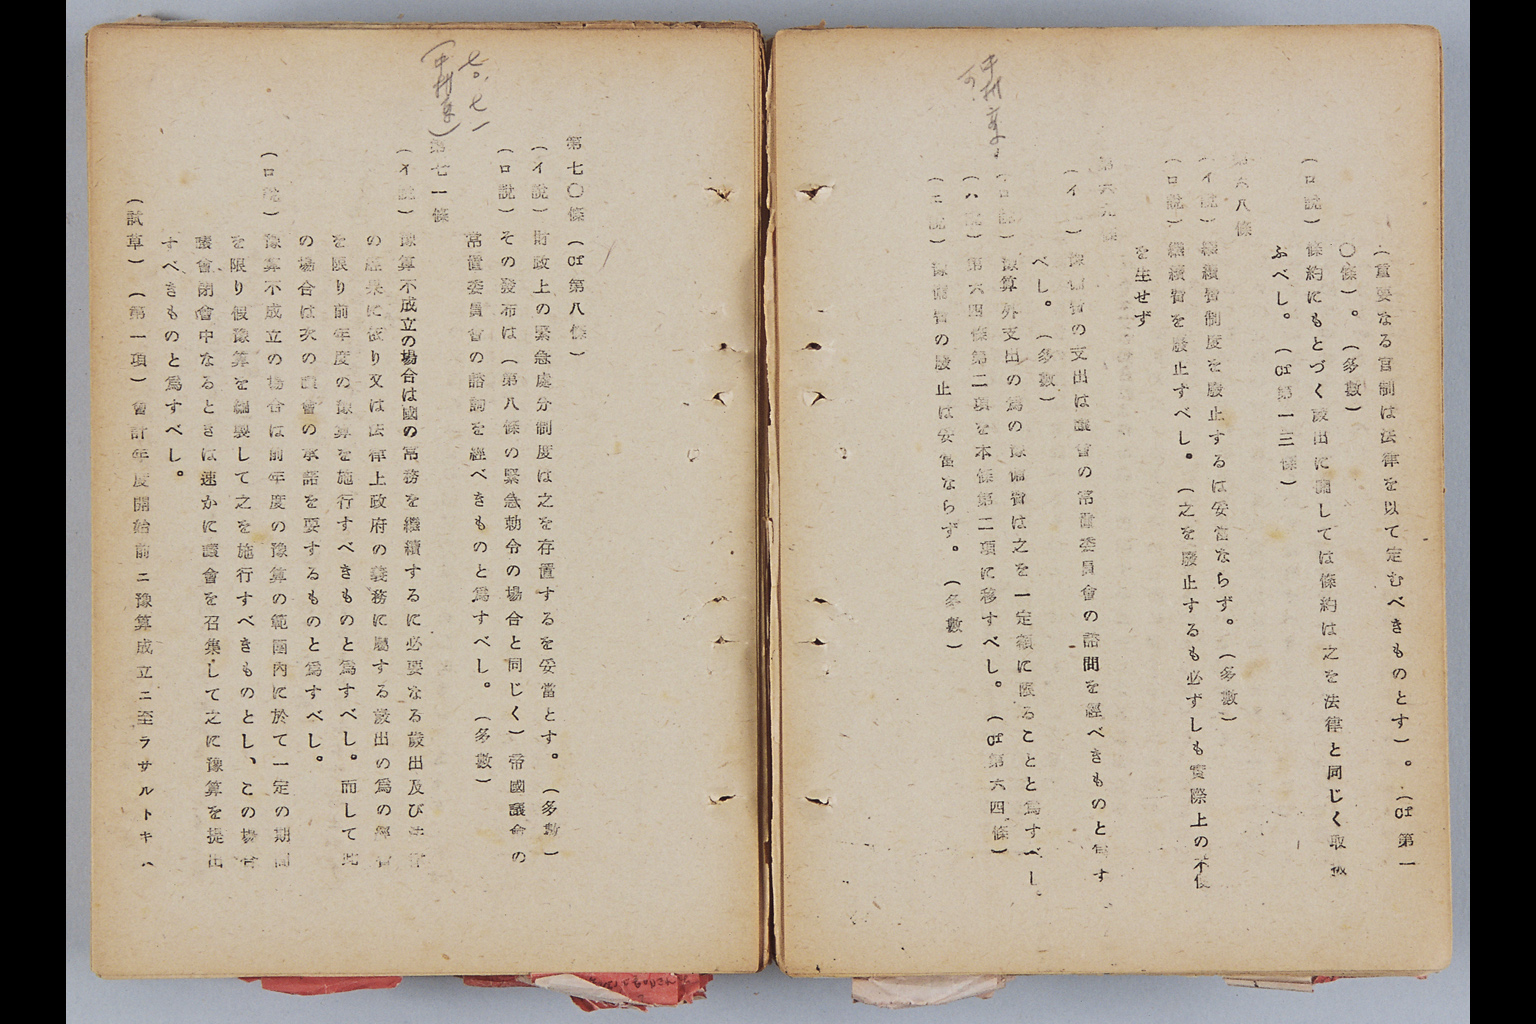 (重要なる官制は法律を以て定むべきものとす)。(cf 第一
〇條)。(多數)
(ロ說)條約にもとづく歲出に關しては條約は之を法律と同じく取扱
ふべし。(cf 第一三條)
第六八條
(イ說)繼續費制度を廢止するは妥當ならず。(多數)
(ロ說)繼續費を廢止すべし。(之を廢止するも必ずしも實際上の不便
を生せず
第六九條
(イ說)豫備費の支出は議會の常置委員會の諮問を經べきものと爲す
べし。(多數)
(ロ說)豫算外支出の爲の豫備費は之を一定額に限ることと爲すべし。
(ハ說)第六四條第二項を本條第二項に移すべし。(cf 第六四條)
(ニ說)豫備費の廢止は妥當ならず。(多數)
七〇、七一
第七〇條(cf 第八條)
(イ說)財政上の緊急處分制度は之を存置するを妥當とす。(多數)
(ロ說)その發布は(第八條の緊急勅令の場合と同じく)帝國議會の
常置委員會の諮詢を經べきものと爲すべし。(多數)
第七一條
(イ說)豫算不成立の場合は國の常務を繼續するに必要なる歲出及び法律
の結果に依り又は法律上政府の義務に屬する歲出の爲の經費
を限り前年度の豫算を施行すべきものと爲すべし。而して此
の場合は次の議會の承諾を要するものと爲すべし。
(ロ說)豫算不成立の場合は前年度の豫算の範圍內に於て一定の期間
を限り假豫算を編製して之を施行すべきものとし、この場合
議會閉會中なるときは速かに議會を召集して之に豫算を提出
すべきものと爲すべし。
(試草)(第一項)會計年度開始前ニ豫算成立ニ至ラサルトキハ